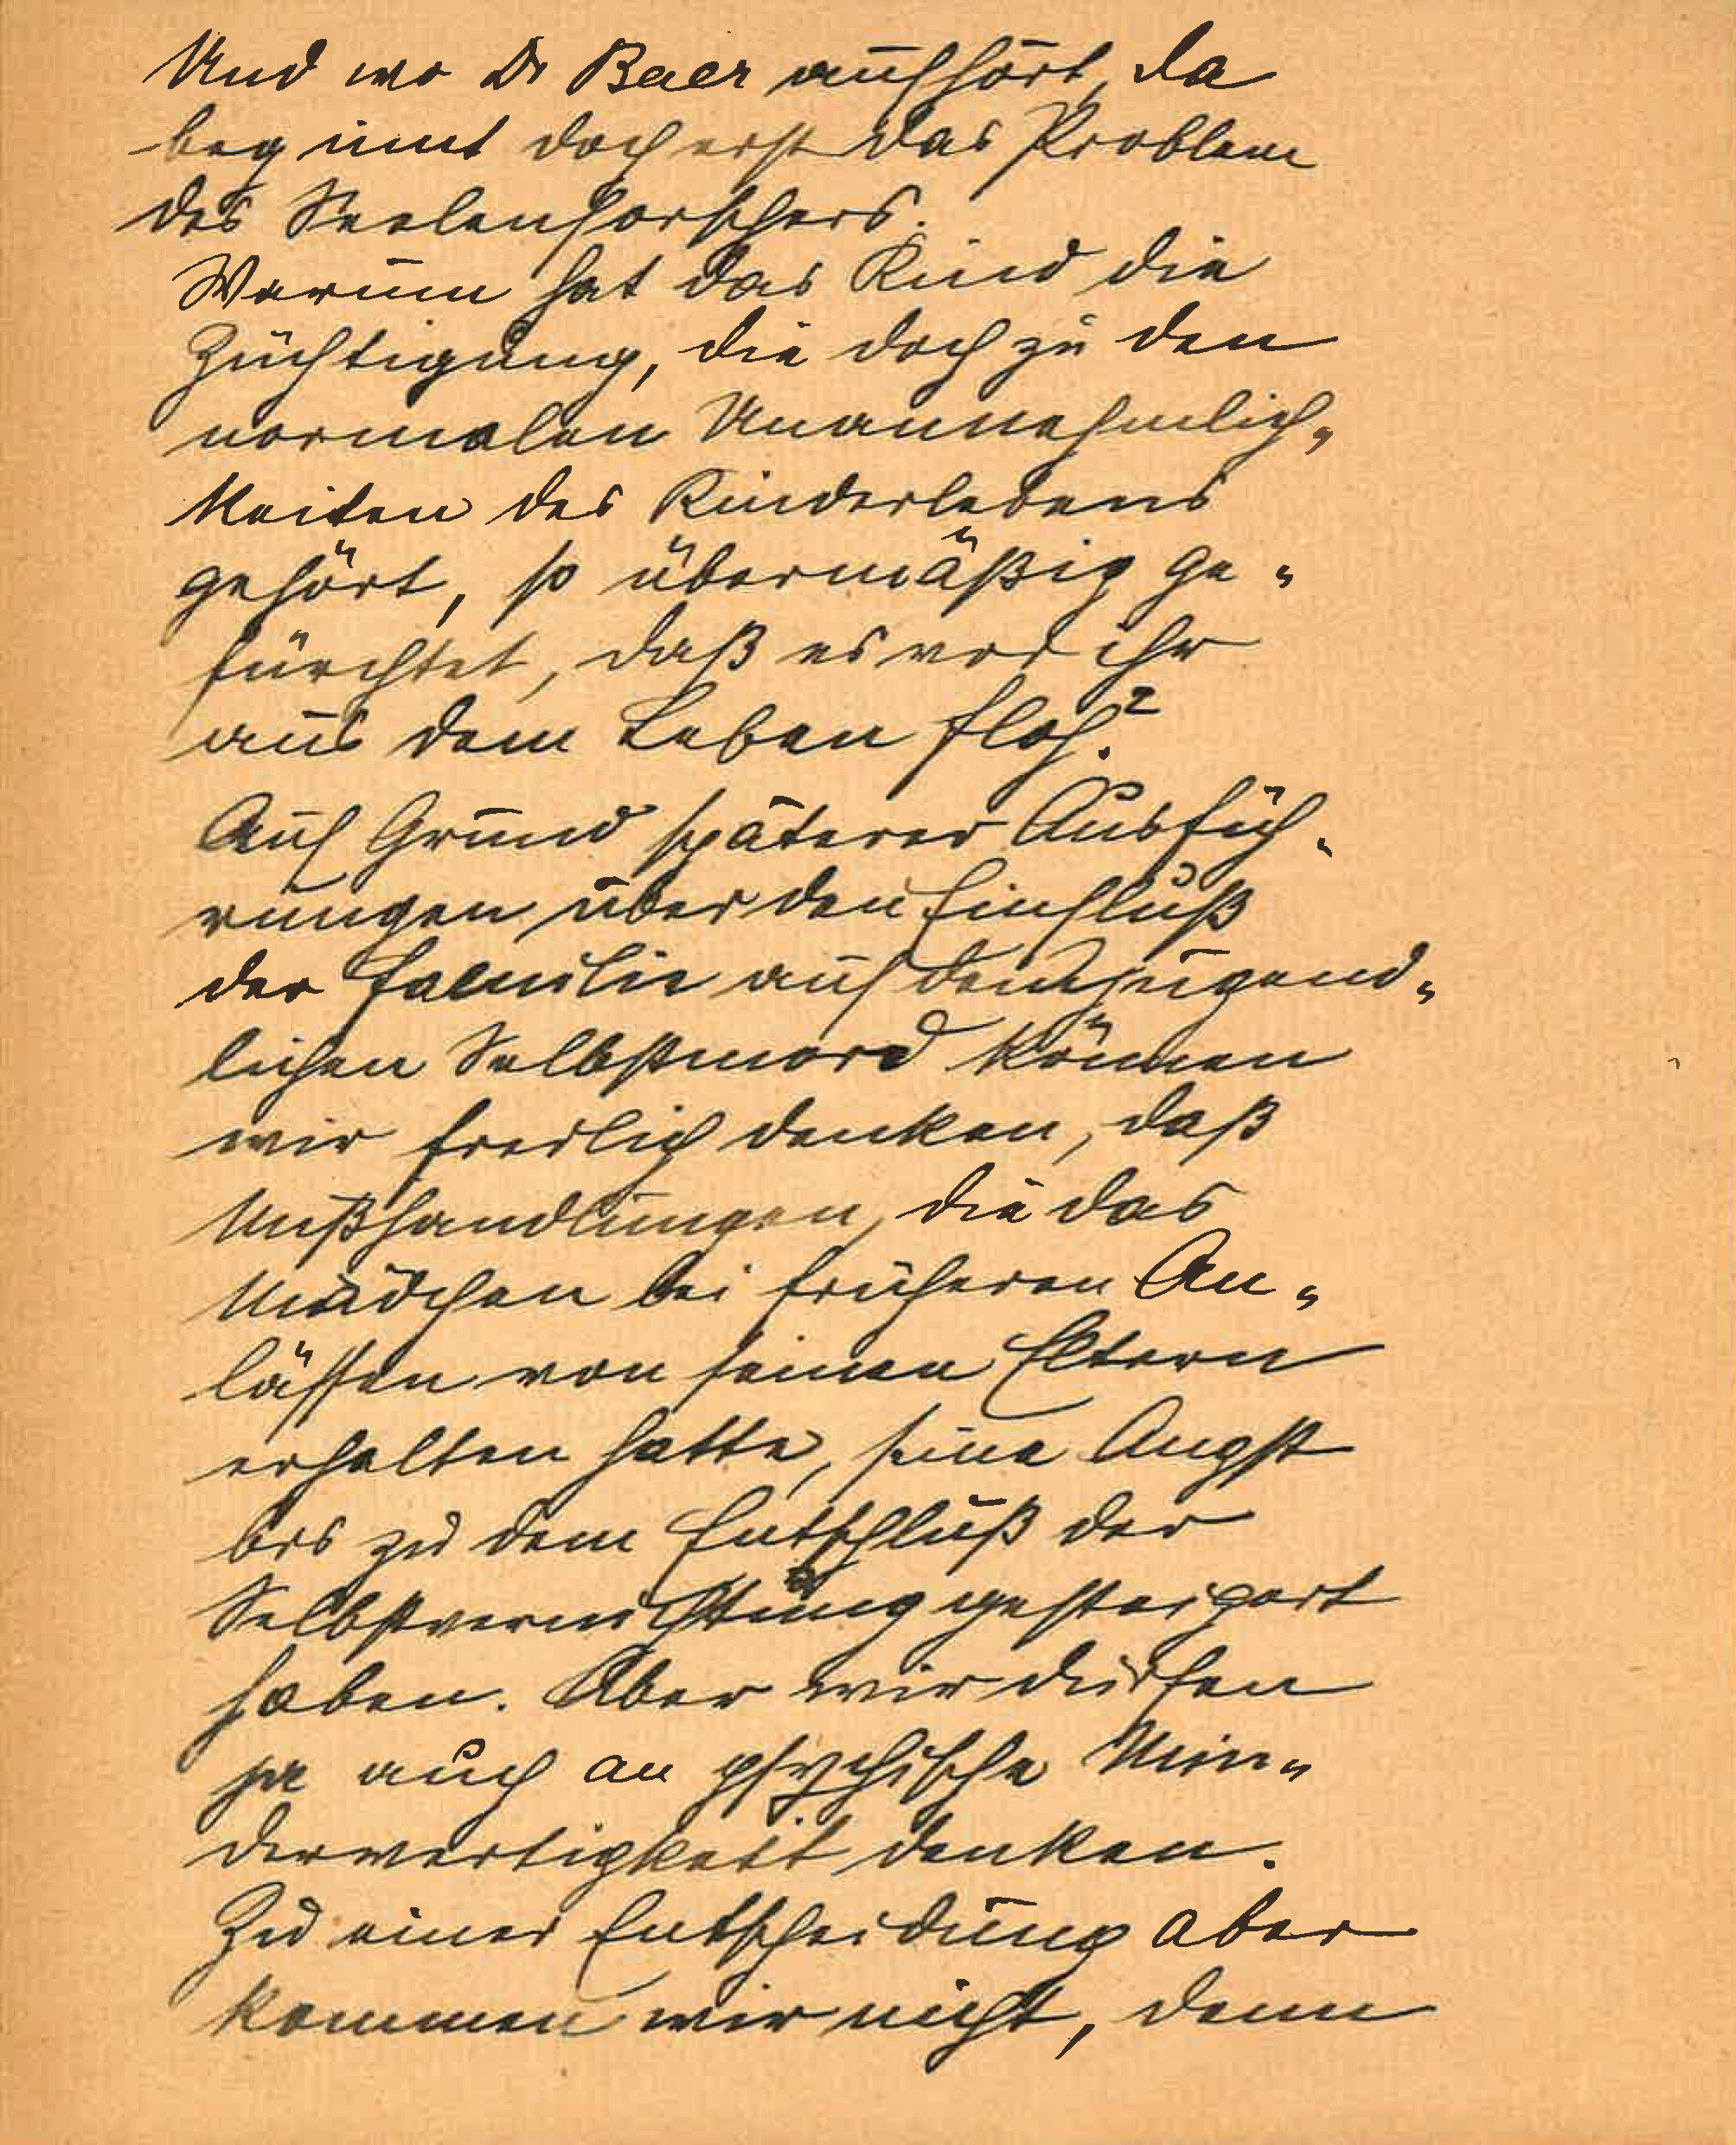 Und wo Dr Baer aufhört, da
beginnt doch erst das Problem
des Seelenforschers.
Warum hat das Kind die
Züchtigung, die doch zu den
normalen Unannehmlich„
keiten des Kinderlebens
gehört, so übermäßig ge„
fürchtet, daß es vor ihr
aus dem Leben floh?
Auf Grund späterer Ausfüh„
rungen über den Einfluß
der Familie auf den jugend„
lichen Selbstmord können
wir freilich denken, daß
Mißhandlungen, die das
Mädchen bei früheren An„
lässen von seinen Eltern
erhalten hatte, seine Angst
bis zu dem Entschluß der
Selbstvernichtung gesteigert
haben. Aber wir dürfen
ja auch an psychische Min„
derwertigkeit denken.
Zu einer Entscheidung aber
kommen wir nicht, denn